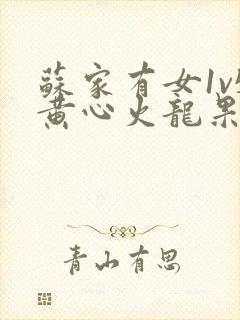 蘇家有女1v
黄心火龍果
青山有思